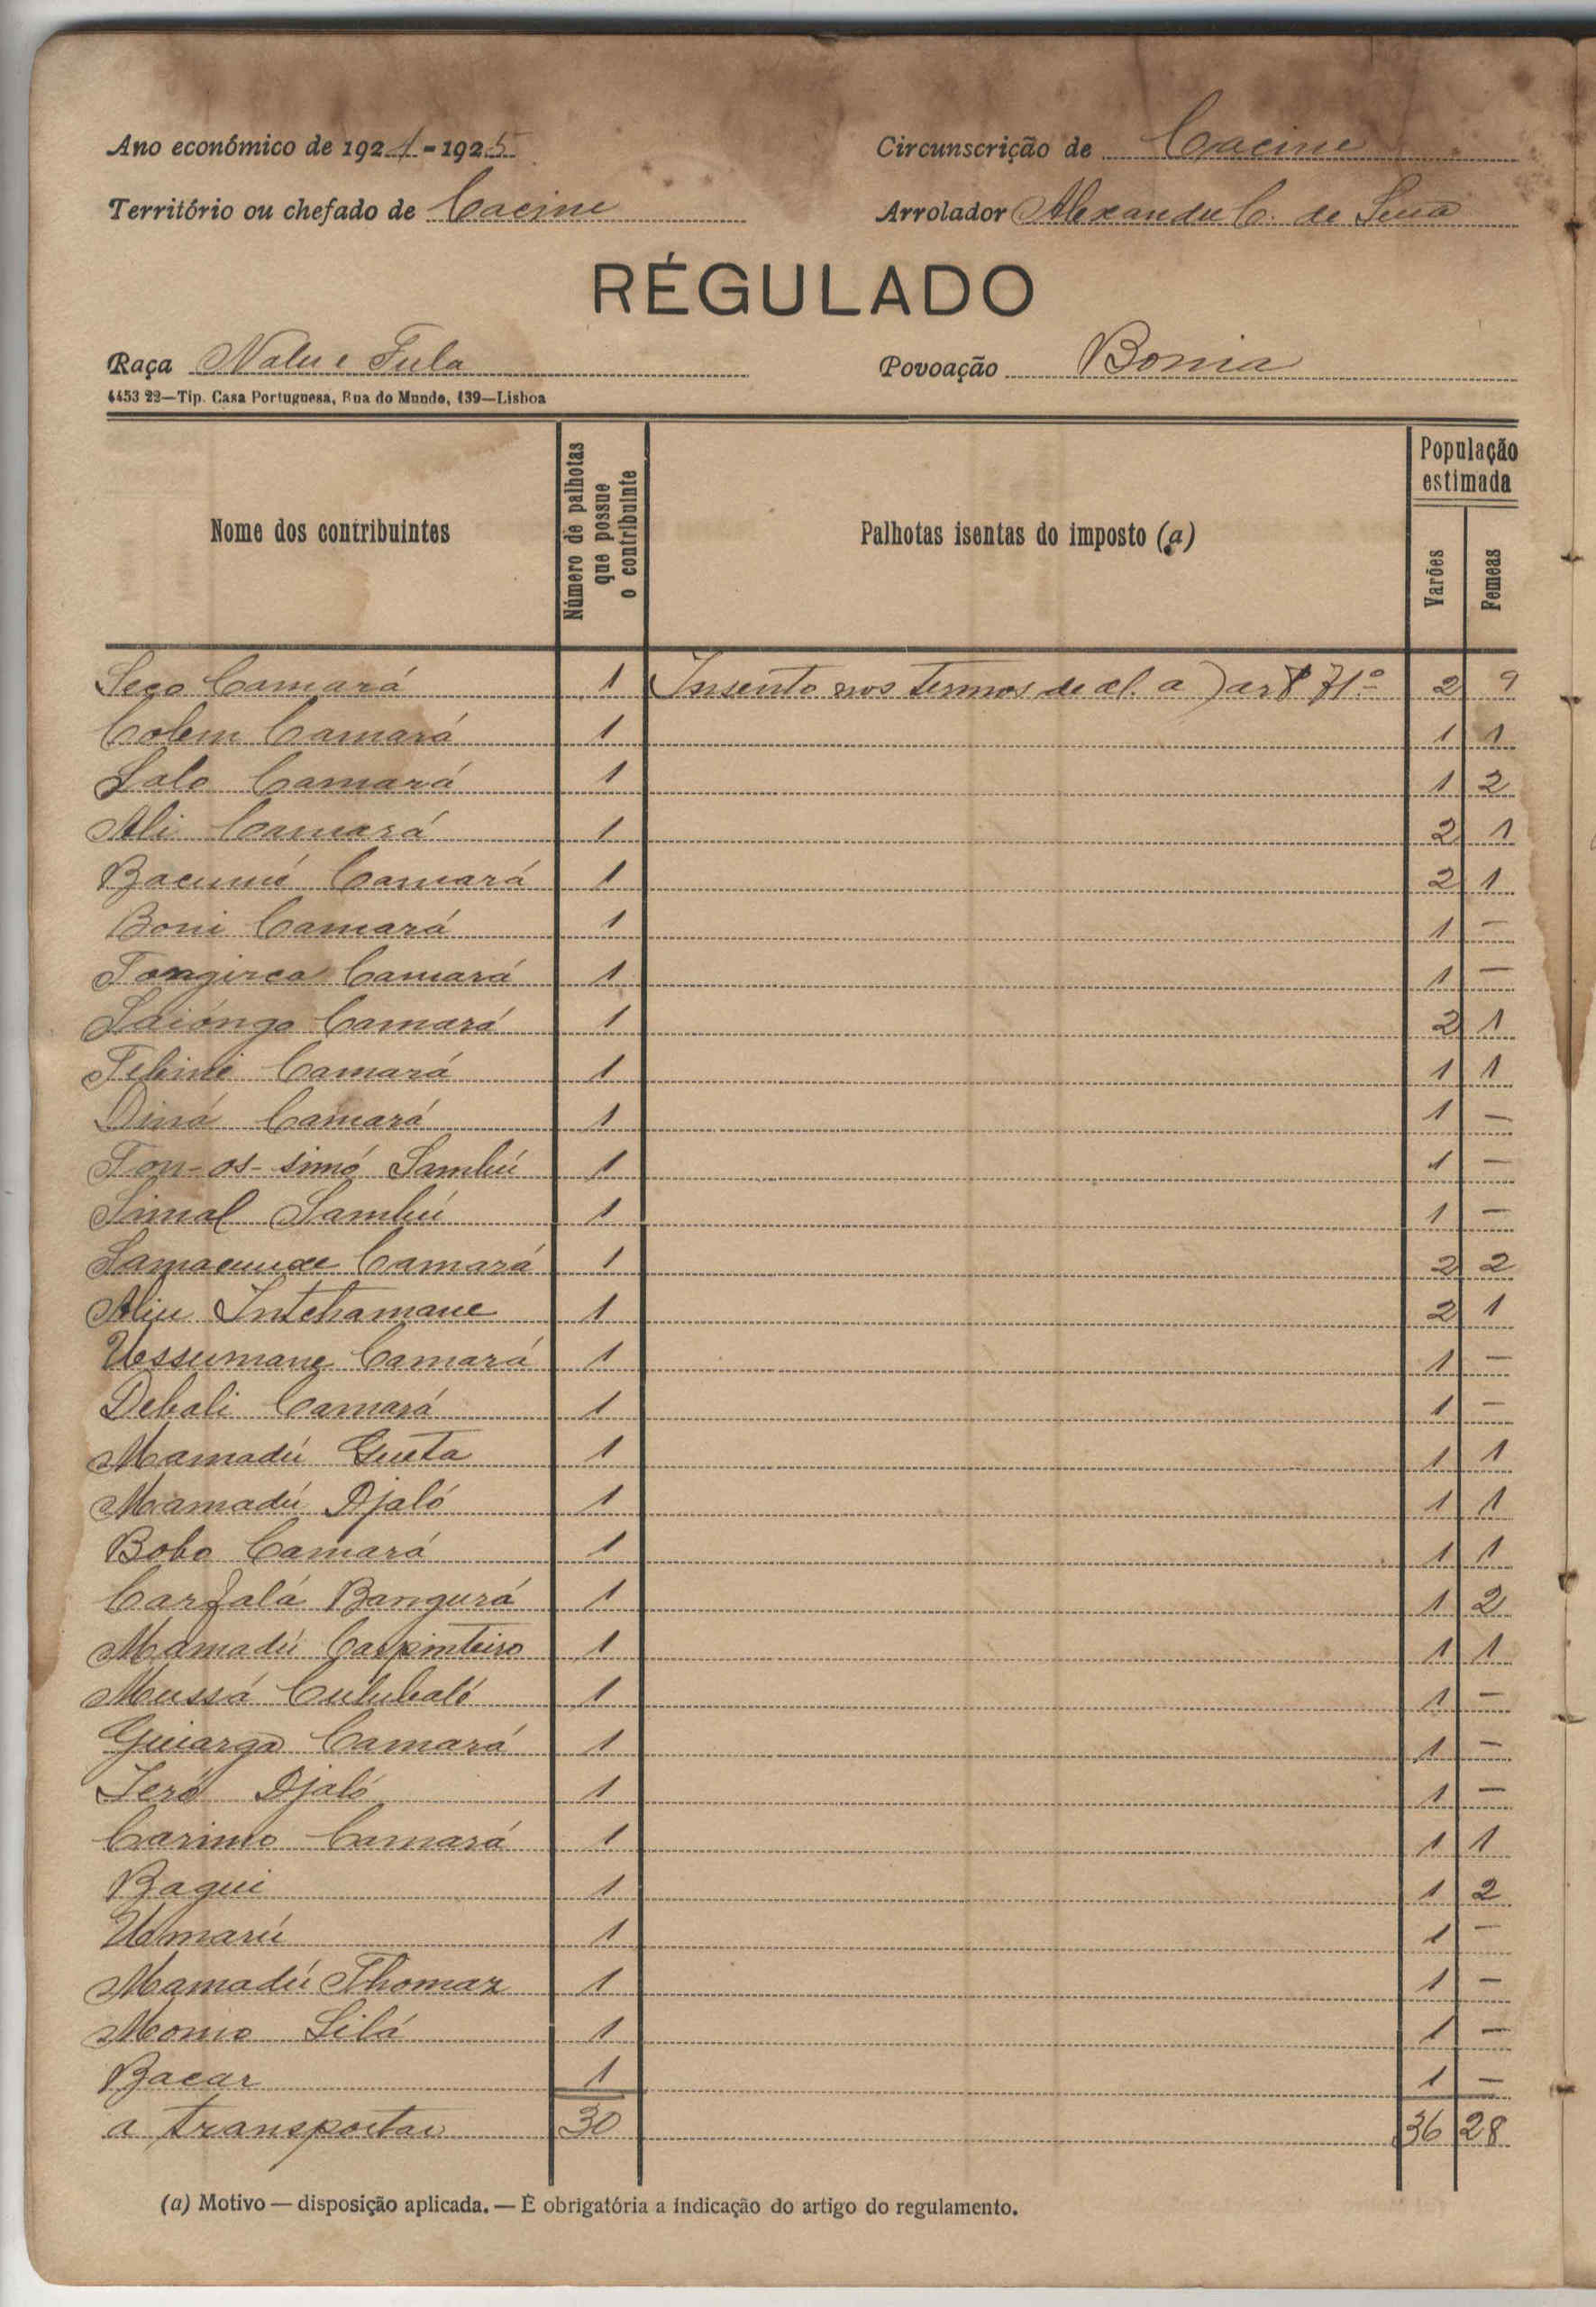 Ano económico de 1924-1925 Circunscrição de Cacine
Território ou chefado de Cacine Arrolador Alexandre C. de Sena
RÉGULADO
Raça Nalu e Fula Povoação Bonia
4453 22—Tip. Casa Portuguesa, Rua do Mundo, 139—Lisboa
Nome dos contribuintes Número de palhotas que possue o contribuinte Palhotas isentas do imposto (a) População estimada Varões Femeas
Seco Camará 1 Insento nos termos de al. a) art 71º 2 9
Colem Camará 1 1 1
Lalo Camará 1 1 2
Ali Camará 1 2 1
Bacumé Camará 1 2 1
Boni Camará 1 1 —
Tongirca Camará 1 1 —
Laiongo Camará 1 2 1
Camará 1 1 1
Diná Camará 1 1 —
Ton-os-simó Sambú 1 1 —
Simal Sambú 1 1 —
Camará 1 2 2
Aliu Intchamane 1 2 1
Ussumane Camará 1 1 —
Debali Camará 1 1 —
Mamadú Gueta 1 1 1
Mamadú Djaló 1 1 1
Bobo Camará 1 1 1
Carfalá Bangurá 1 1 2
Mamadú Carpinteiro 1 1 1
Mussá Culubalé 1 1 —
Guiarga Camará 1 1 —
Jeró Djaló 1 1 —
Carimo Camará 1 1 1
Bagui 1 1 2
Umarú 1 1 —
Mamadú Thomaz 1 1 —
Momo Silá 1 1 —
Bacar 1 1 —
a transportar 30 36 28
(a) Motivo — disposição aplicada. — É obrigatória a indicação do artigo do regulamento.